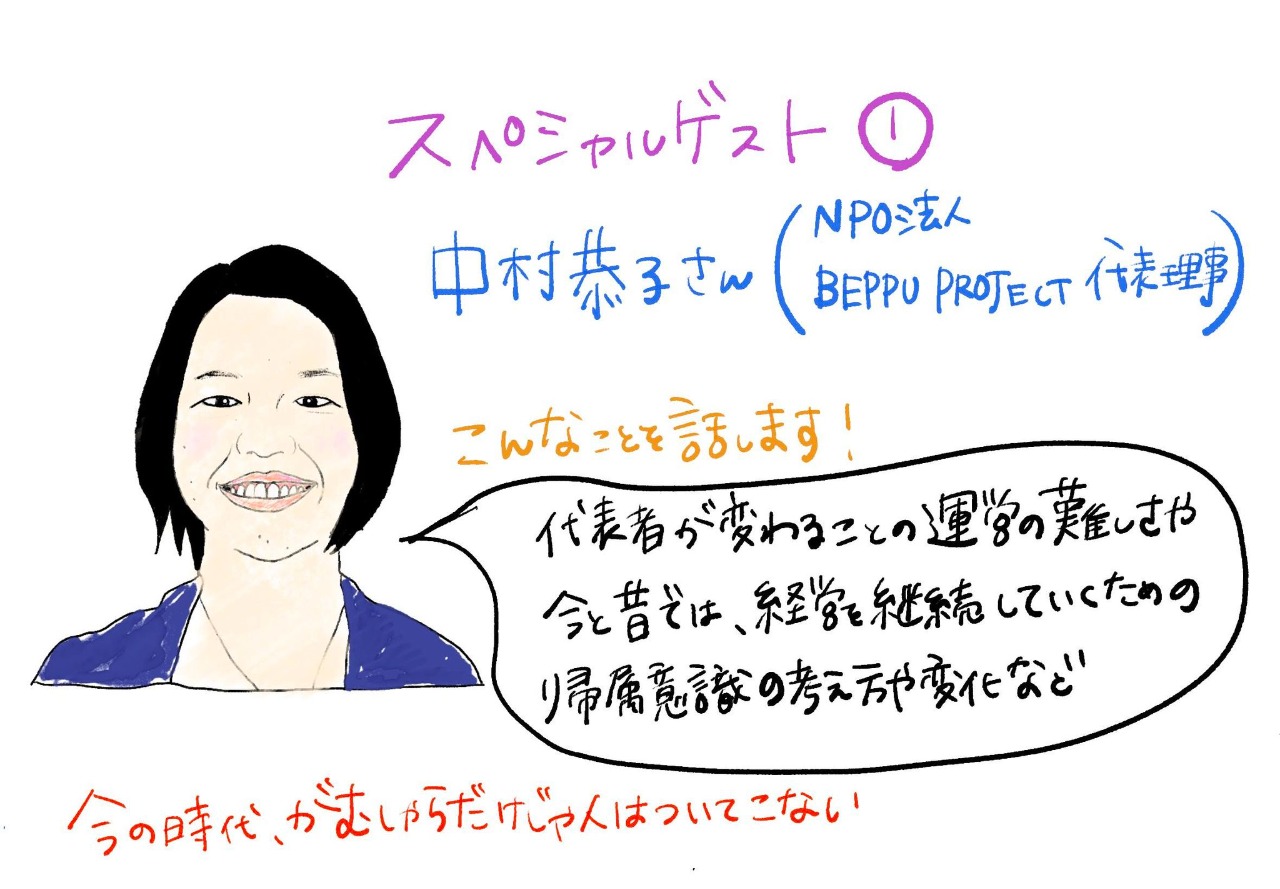 スペシャルゲスト①
中村恭子さん(NPO法人
BEPPU PROJECT 代表理事)
こんなことを話します!
代表者が変わることの運営の難しさや
今と昔では、経営を継続していくための
帰属意識の考え方や変化など
今の時代、がむしゃらだけじゃ人はついてこない